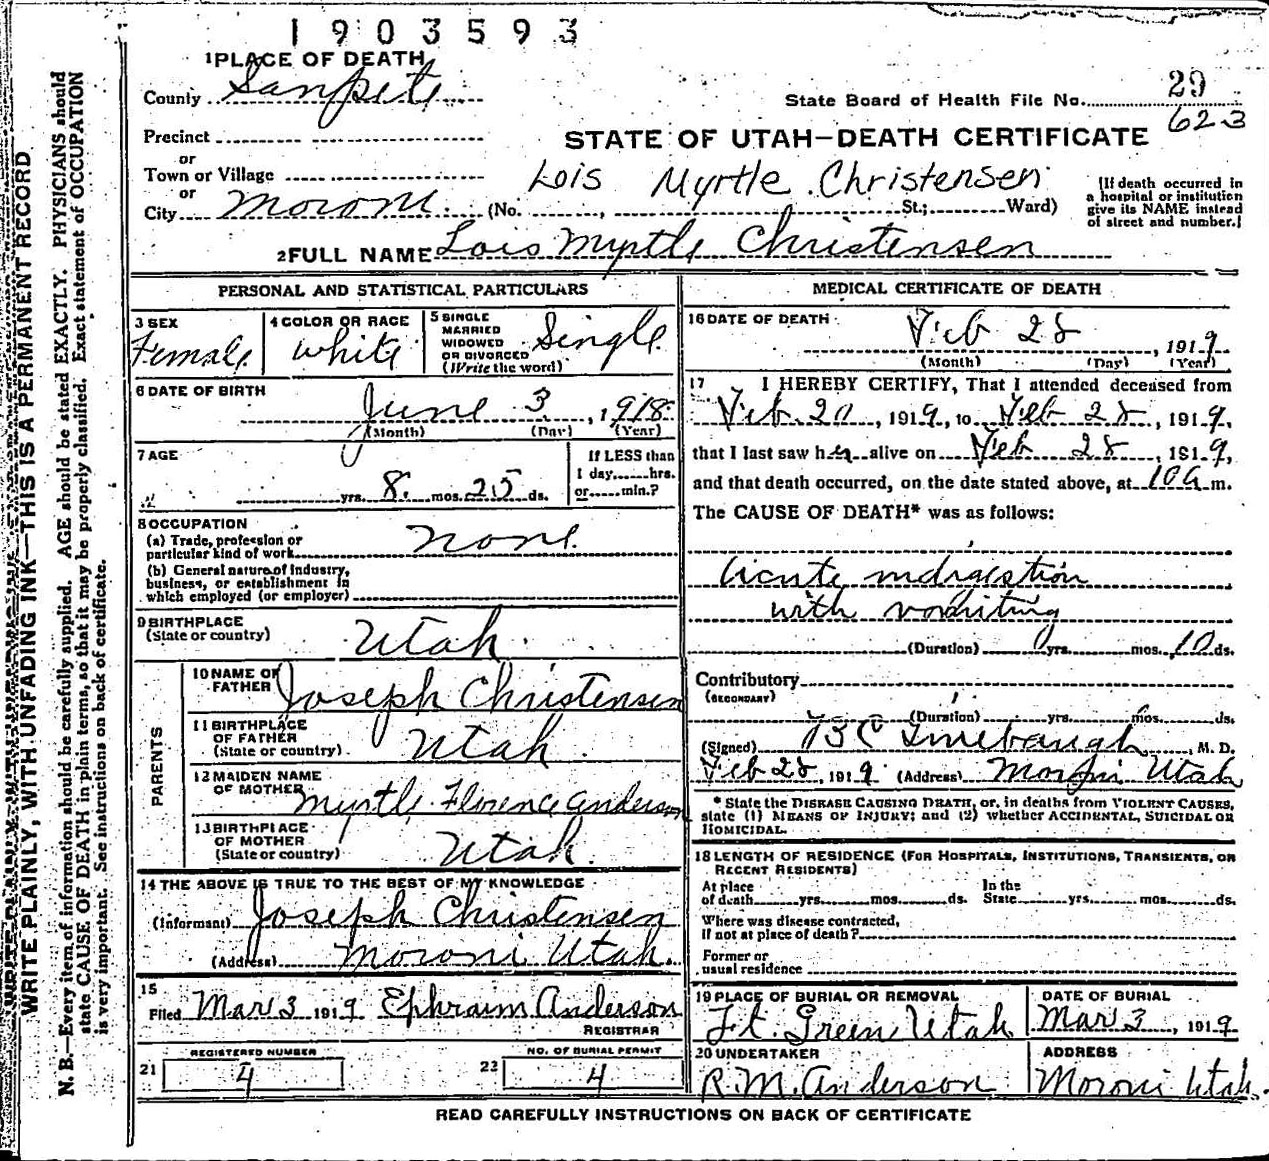 1903593
1 PLACE OF DEATH
County Sanpete
State Board of Health File No. 29
623
Precinct
or
STATE OF UTAH—DEATH CERTIFICATE
Town or Village
or
Lois Myrtle Christensen
City Moroni (No. , St.; Ward)
(If death occurred in
a hospital or institution
give its NAME instead
of street and number.)
2 FULL NAME Lois Myrtle Christensen
PERSONAL AND STATISTICAL PARTICULARS
3 SEX
Female
4 COLOR OR RACE
White
5 SINGLE
MARRIED
WIDOWED
OR DIVORCED
(Write the word)
Single
6 DATE OF BIRTH
June 3, 1918
(Month) (Day) (Year)
7 AGE
yrs. 8 mos. 25 ds.
If LESS than
1 day......hrs.
or......min.?
8 OCCUPATION
(a) Trade, profession or
particular kind of work None
(b) General nature of Industry,
business, or establishment in
which employed (or employer)
9 BIRTHPLACE
(State or country) Utah
PARENTS
10 NAME OF
FATHER Joseph Christensen
11 BIRTHPLACE
OF FATHER
(State or country) Utah
12 MAIDEN NAME
OF MOTHER Myrtle Florence Anderson
13 BIRTHPLACE
OF MOTHER
(State or country) Utah
14 THE ABOVE IS TRUE TO THE BEST OF MY KNOWLEDGE
(Informant) Joseph Christensen
(Address) Moroni Utah.
15
Filed Mar 3 1919 Ephraim Anderson
REGISTRAR
21 REGISTERED NUMBER
4
22 NO. OF BURIAL PERMIT
4
MEDICAL CERTIFICATE OF DEATH
16 DATE OF DEATH
Feb 28, 1919
(Month) (Day) (Year)
17 I HEREBY CERTIFY, That I attended deceased from
Feb 20, 1919, to Feb 28, 1919,
that I last saw her alive on Feb 28, 1919,
and that death occurred, on the date stated above, at 10 a m.
The CAUSE OF DEATH* was as follows:
Acute indigestion
with vomiting
(Duration) yrs. mos. 10 ds.
Contributory
(SECONDARY)
(Duration) yrs. mos. ds.
(Signed) , M. D.
Feb 28, 1919 (Address) Moroni Utah
* State the DISEASE CAUSING DEATH, or, in deaths from VIOLENT CAUSES,
state (1) MEANS OF INJURY; and (2) whether ACCIDENTAL, SUICIDAL OR
HOMICIDAL.
18 LENGTH OF RESIDENCE (FOR HOSPITALS, INSTITUTIONS, TRANSIENTS, OR
RECENT RESIDENTS)
At place
of death yrs. mos. ds.
In the
State yrs. mos. ds.
Where was disease contracted,
If not at place of death?
Former or
usual residence
19 PLACE OF BURIAL OR REMOVAL
Ft. Green Utah
DATE OF BURIAL
Mar 3, 1919
20 UNDERTAKER
R. M. Anderson
ADDRESS
Moroni Utah.
READ CAREFULLY INSTRUCTIONS ON BACK OF CERTIFICATE
WRITE PLAINLY, WITH UNFADING INK—THIS IS A PERMANENT RECORD
N. B.—Every item of information should be carefully supplied. AGE should be stated EXACTLY. PHYSICIANS should
state CAUSE OF DEATH in plain terms, so that it may be properly classified. Exact statement of OCCUPATION
is very important. See instructions on back of certificate.